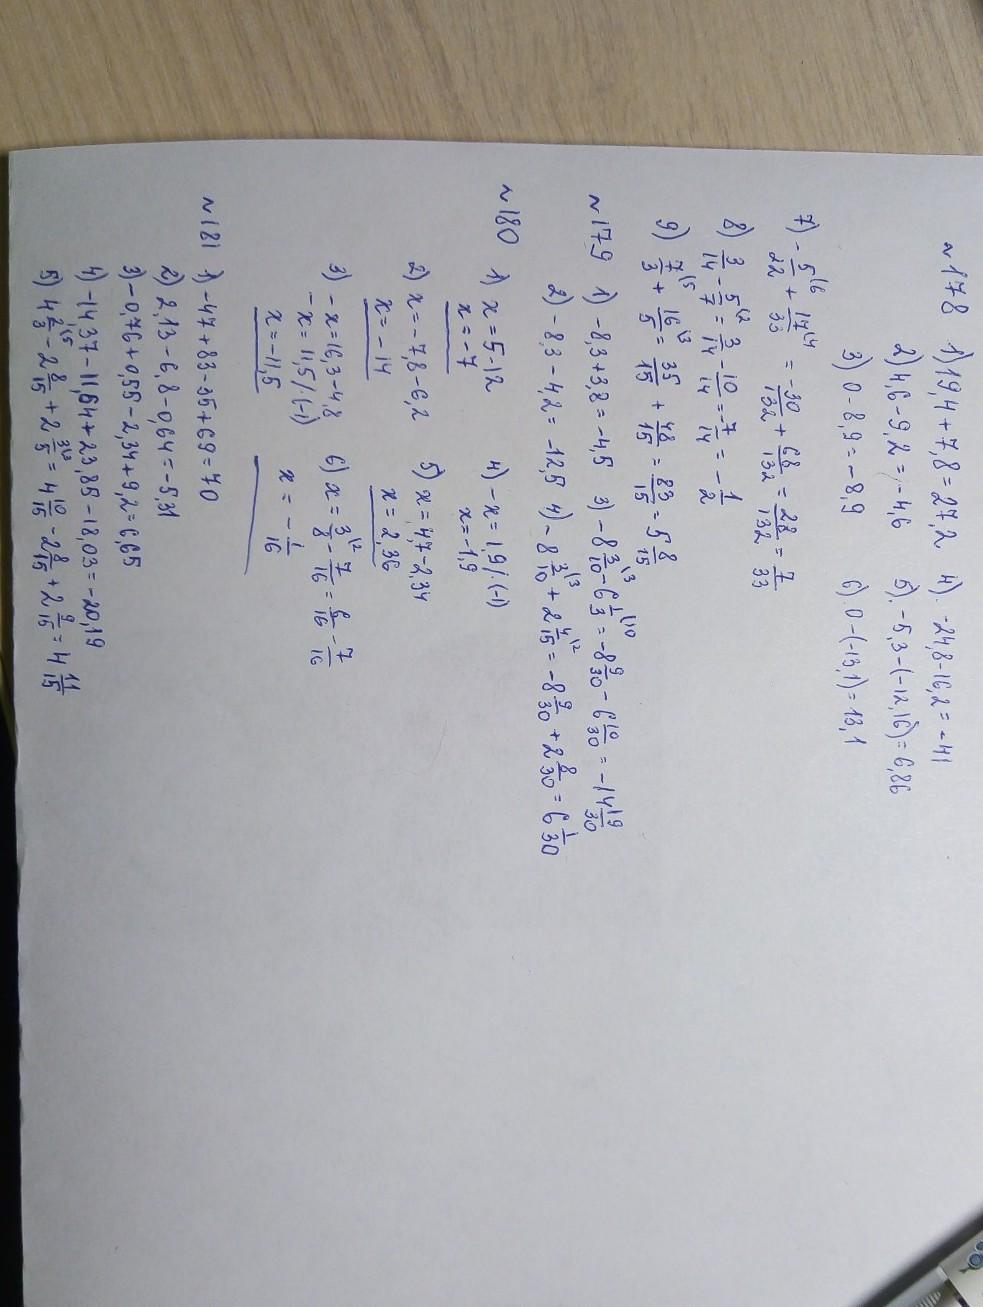 ~178 1) 19,4 + 7,8 = 27,2 4). -24,8-16,2 = -41
2) 4,6 - 9,2 = -4,6 5). -5,3-(-12,16) = 6,86
3) 0 - 8,9 = - 8,9 6). 0 -(-13,1) = 13,1
7) - 5/22 \6 + 17/33 \4 = -30/132 + 68/132 = 28/132 = 7/33
8) 3/14 - 5/7 \2 = 3/14 - 10/14 = -7/14 = - 1/2
9) 7/3 \5 + 16/5 \3 = 35/15 + 48/15 = 83/15 = 5 8/15
~179 1) -8,3 + 3,8 = -4,5 3) - 8 3/10 \3 - 6 1/3 \10 = -8 9/30 - 6 10/30 = -14 19/30
2) - 8,3 - 4,2 = -12,5 4) - 8 3/10 \3 + 2 4/15 \2 = -8 9/30 + 2 8/30 = 6 1/30
~180 1) x = 5-12 4) -x = 1,9 /·(-1)
x = -7 x = -1,9
2) x = - 7,8 - 6,2 5) x = 4,7 - 2,34
x = -14 x = 2,36
3) - x = 16,3 - 4,8 6) x = 3/8 \2 - 7/16 = 6/16 - 7/16
- x = 11,5 /·(-1)
x = -11,5 x = - 1/16
~181 1) -47 + 83 - 35 + 69 = 70
2) 2,13 - 6,8 - 0,64 = -5,31
3) -0,76 + 0,55 - 2,34 + 9,2 = 6,65
4) -14,37 - 11,64 + 23,85 - 18,03 = -20,19
5) 4 2/3 \5 - 2 8/15 + 2 3/5 \3 = 4 10/15 - 2 8/15 + 2 9/15 = 4 11/15